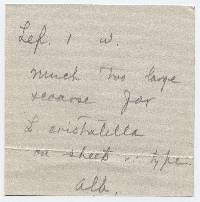 Lef. 1 w.
much too large
& coarse for
L. cristatella
on sheet w. type
alb.